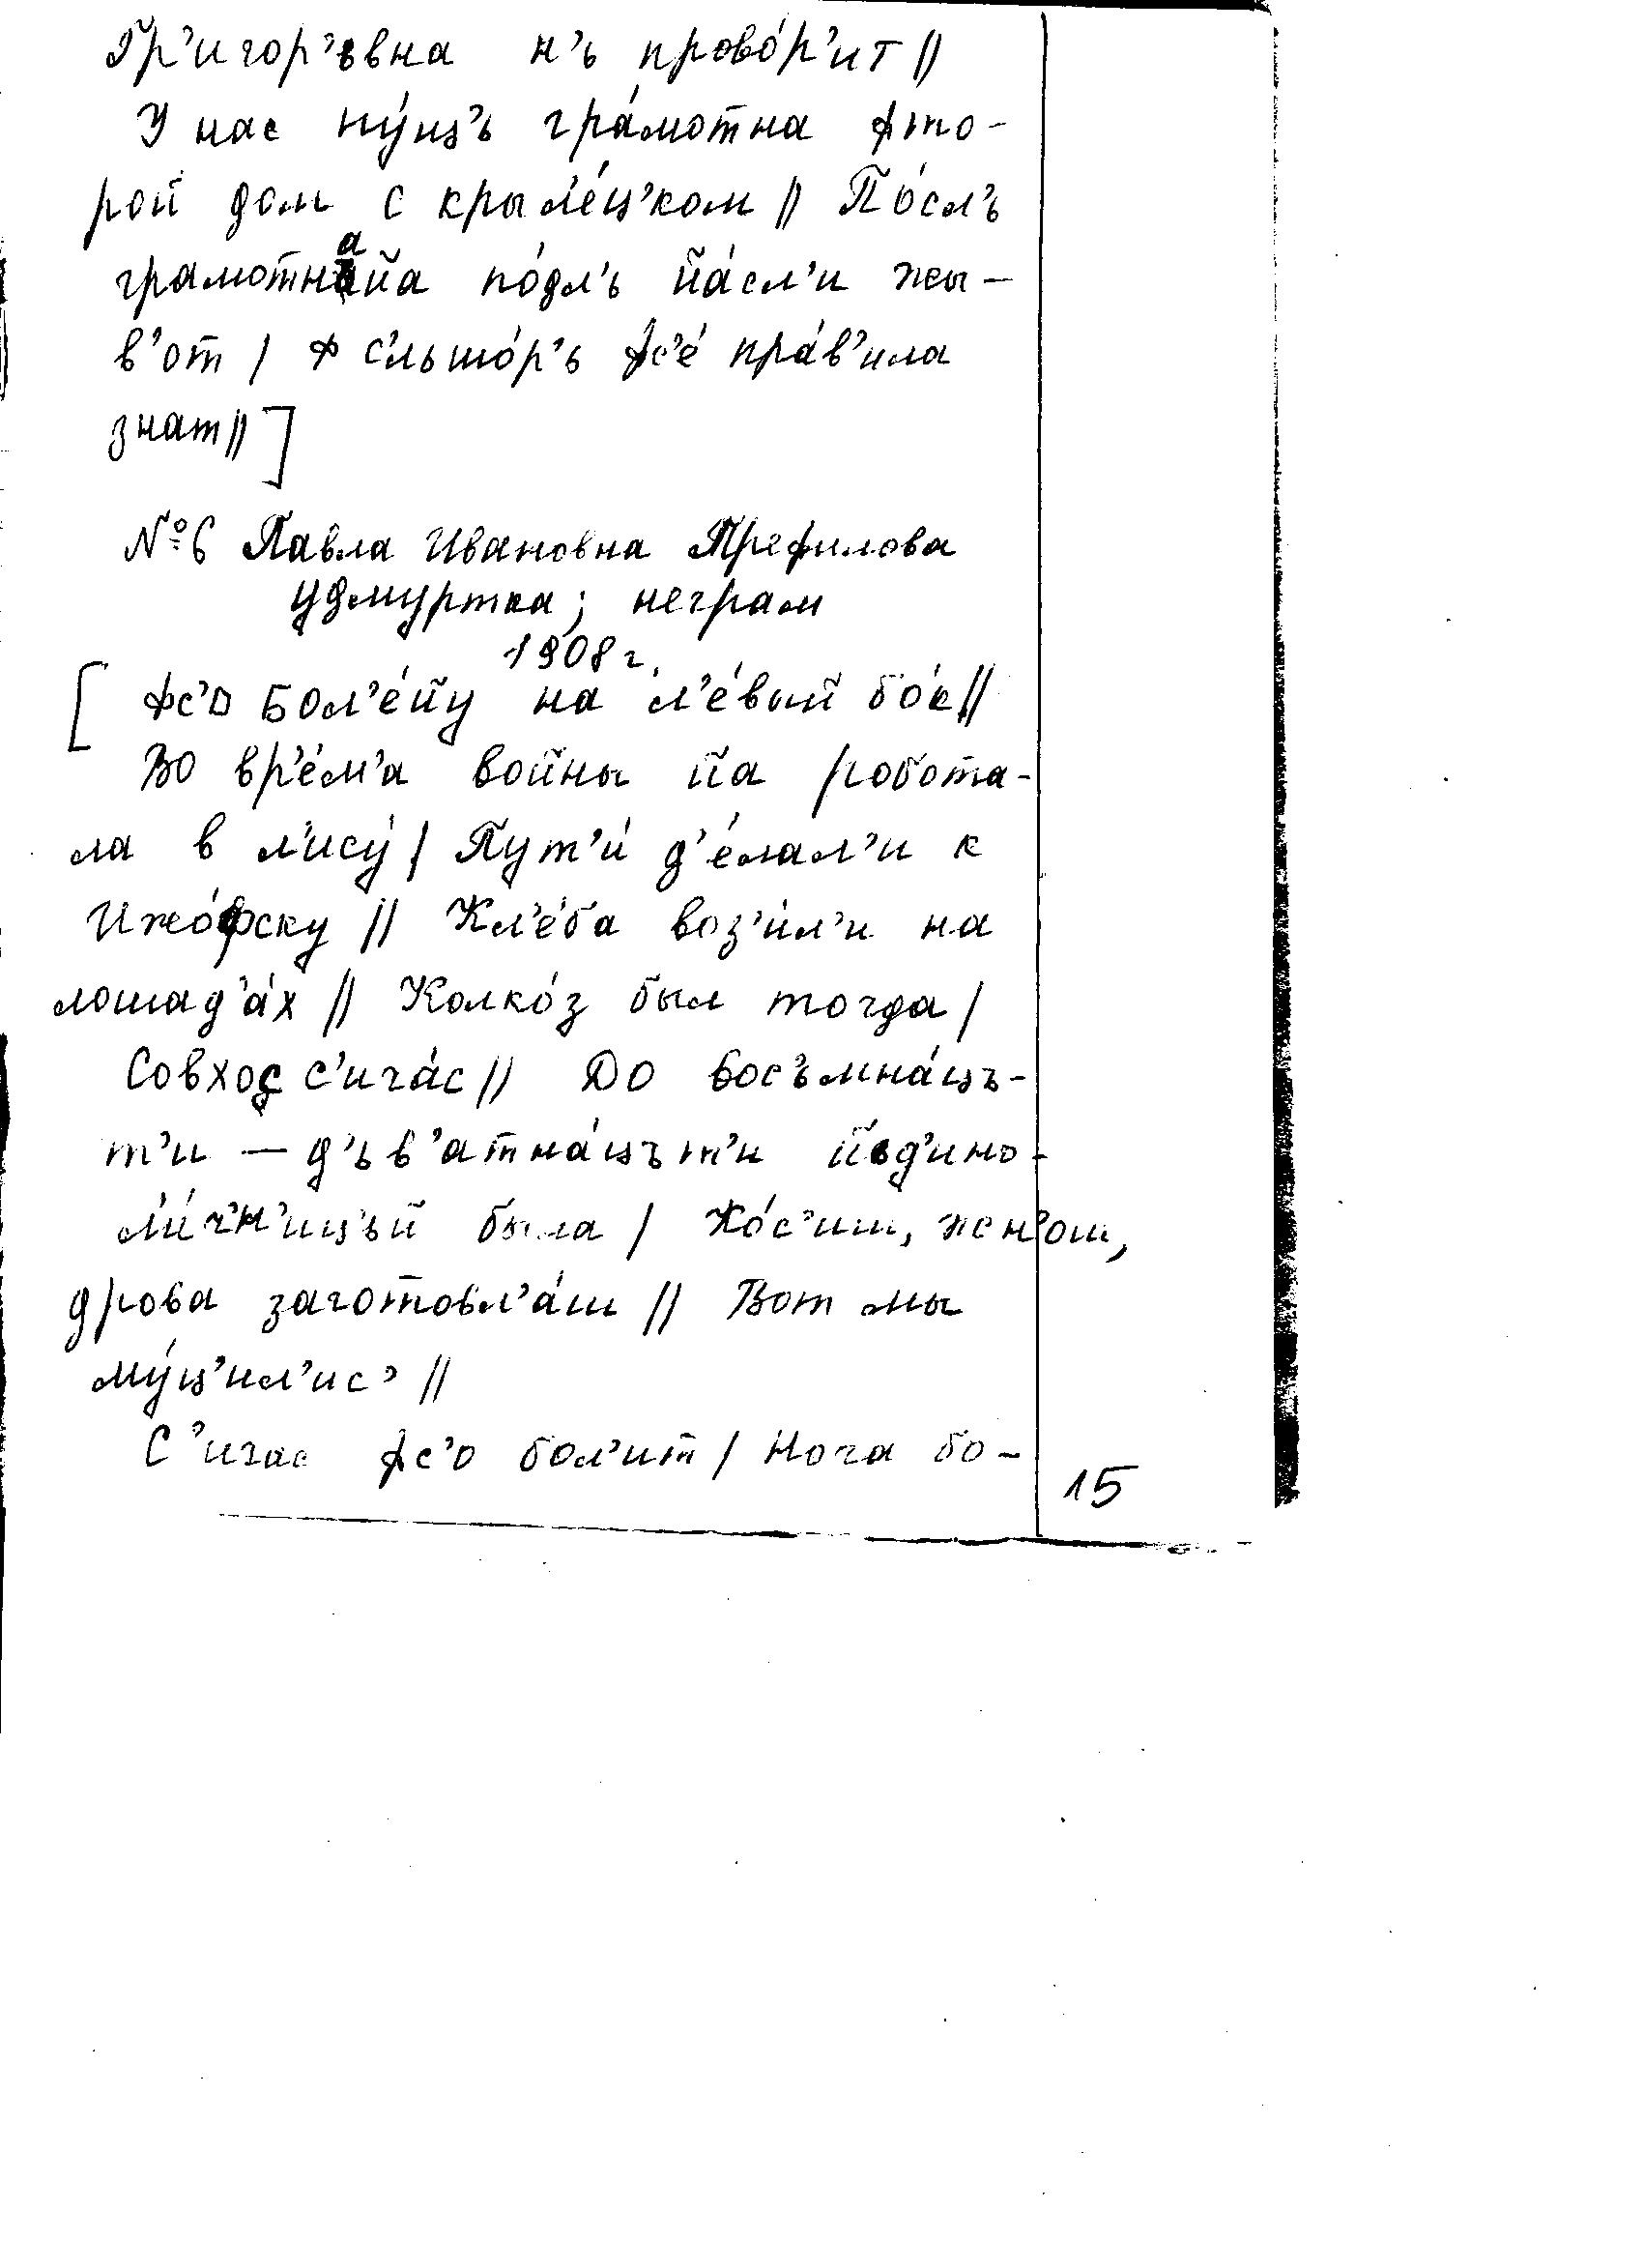 Гр'игор'ъвна н'ь провóр'ит //
У нас нýцз'ь грáмотна фто-
рой дом с крыл'éц'ком // Пóсл'ь
грамотнайа пóдл'ь йáсл'и жы-
в'от / ф с'льшóр'ь фс'é прáв'ила
знат // ]
№6 Павла Ивановна Трефилова
удмуртка; неграм
1908 г.
[ фс'о бол'éйу на л'éвый бóк //
Во вр'éм'а войны йа робота-
ла в л'исý / Пут'и́ д'éлал'и к
Ижóфску // Кл'éба воз'и́л'и на
лошад'áх // Колкóз был тогда /
Совхос с'ичáс // До восъмнáцъ-
т'и — д'ьв'атнáцът'и йьд'ино-
ли́ч'н'иц'ьй была / Кóс'иш, жн'ош,
дрова заготовл'áш // Вот мы
мýц'ил'ис' //
С'ичас фс'о бол'ит / Нога бо-
15